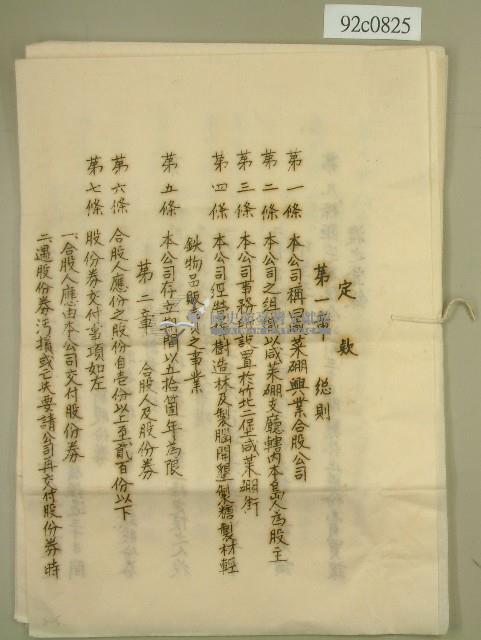 92c0825
定款
第一章 總則
第一條 本公司稱爲咸菜硼興業合股公司
第二條 本公司之組織以咸菜硼支廳轄內本島人爲股主
第三條 本公司事務所設置於竹北二堡咸菜硼街
第四條 本公司經營植樹造林及製腦開墾製糖製材輕
鉄物品販賣之事業
第五條 本公司存立期間以五拾箇年爲限
第二章 合股人及股份券
第六條 合股人應份之股份自壱份以上至貳百份以下
第七條 股份券交付事項如左
一、合股人應由本公司交付股份券
二、遇股份券汚損或亡失要請公司再交付股份券時